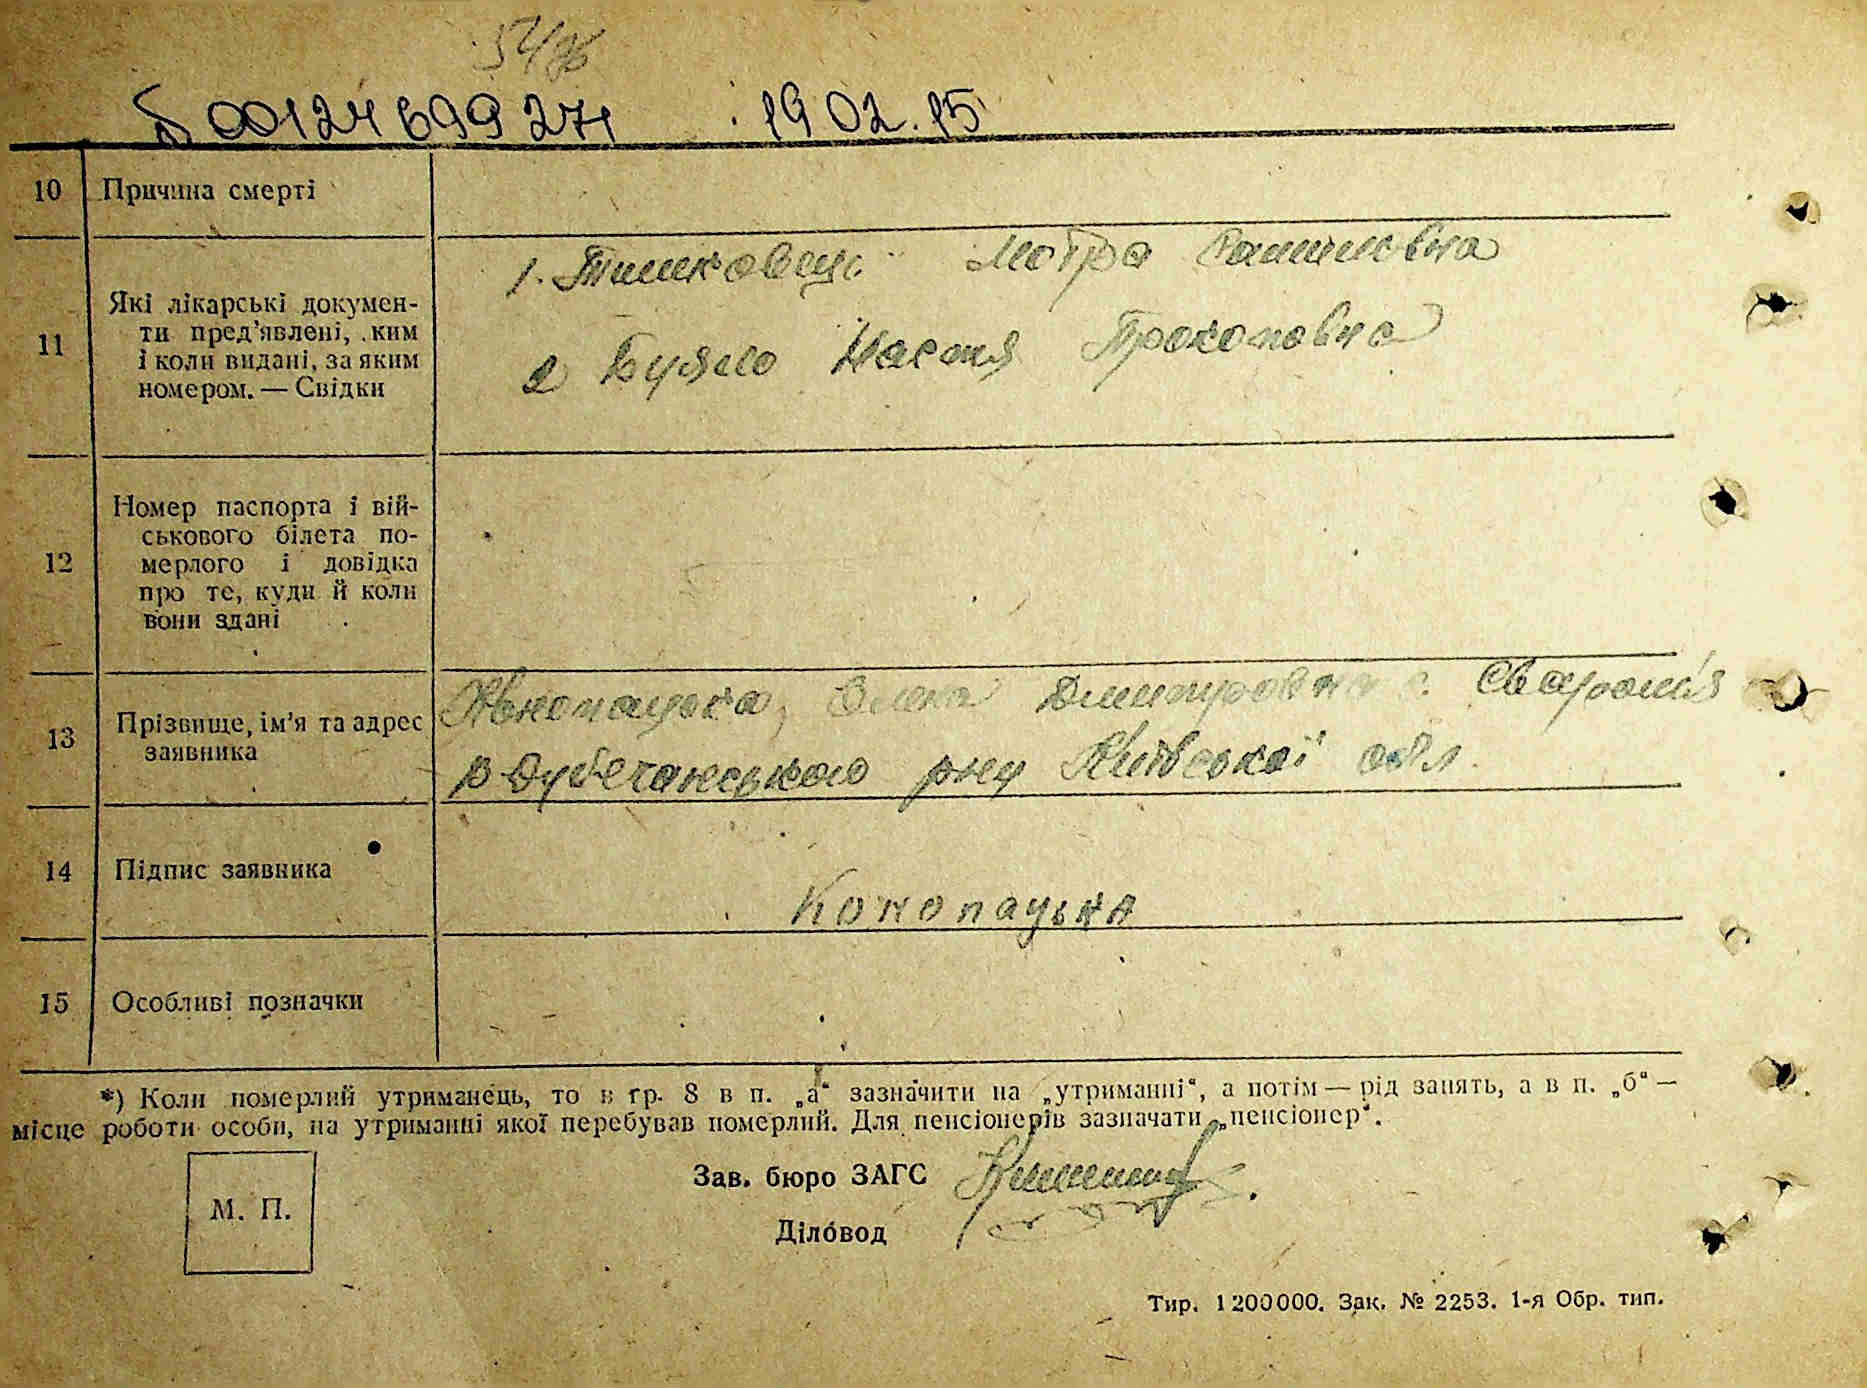 00124699271 19 02.15
10 Причина смерті
11 Які лікарські докумен-
ти пред'явлені, ким
і коли видані, за яким
номером. — Свідки
1. Мотра
2 Буяло Настя Прокоповна
12 Номер паспорта і вій-
ськового білета по-
мерлого і довідка
про те, куди й коли
вони здані
13 Прізвище, ім'я та адрес
заявника
Дмитровна
Київської обл
14 Підпис заявника
Конопацька
15 Особливі позначки
*) Коли померлий утриманець, то в гр. 8 в п. „а“ зазначити на „утриманні“, а потім — рід занять, а в п. „б“ —
місце роботи особи, на утриманні якої перебував померлий. Для пенсіонерів зазначати „пенсіонер“.
М. П.
Зав. бюро ЗАГС
Діловод
Тир. 1200000. Зак. № 2253. 1-я Обр. тип.